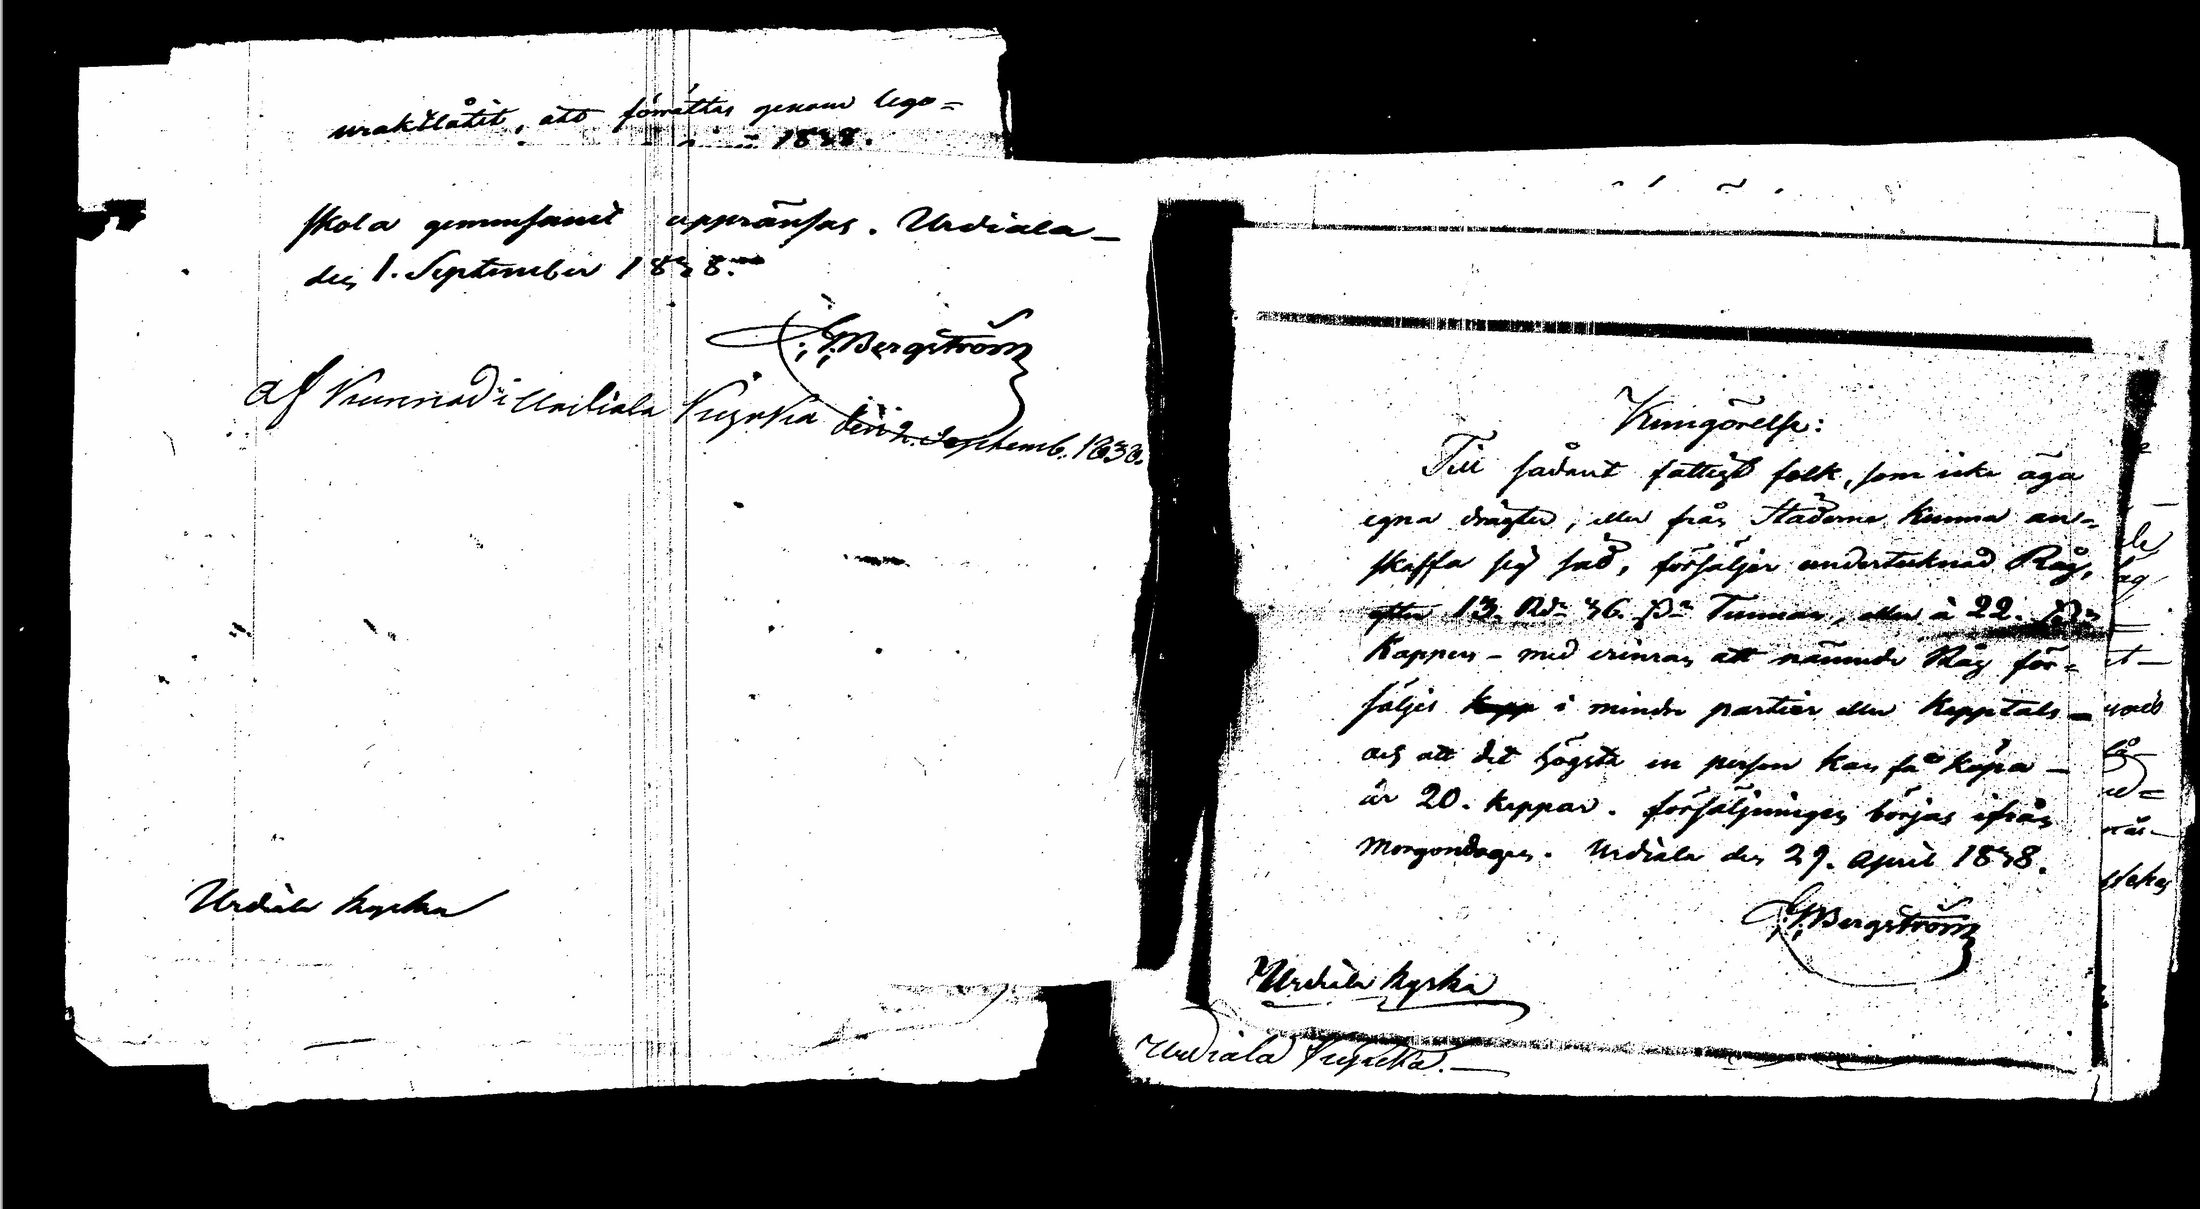 uraktlåtit, att förrättas genom lego=
1838.
skola gemensamt uppränsas. Urdiala_
den 1. September 1838.
G. Bergström
af Kunnad i Urdiala Kyrka den 2. Septemb. 1838.
Urdiala kyrka
Kungörelse:
Till sådant fattigt folk, som icke äga
egna drägter, eller från Städerne kunna an=
skaffa sig säd, försäljer undertecknad Råg,
efter 13. Rdr 36. Tunnan, eller à 22.
Kappen – med erinran att nämnde Råg för=
säljes kapp i mindre partier eller kapptals –
och att det högsta en person kan få köpa –
är 20. kappar. försäljningen börjas ifrån
morgondagen. Urdiala den 29. April 1838.
G. Bergström
Urdiala kyrka
Urdiala Kyrka. –